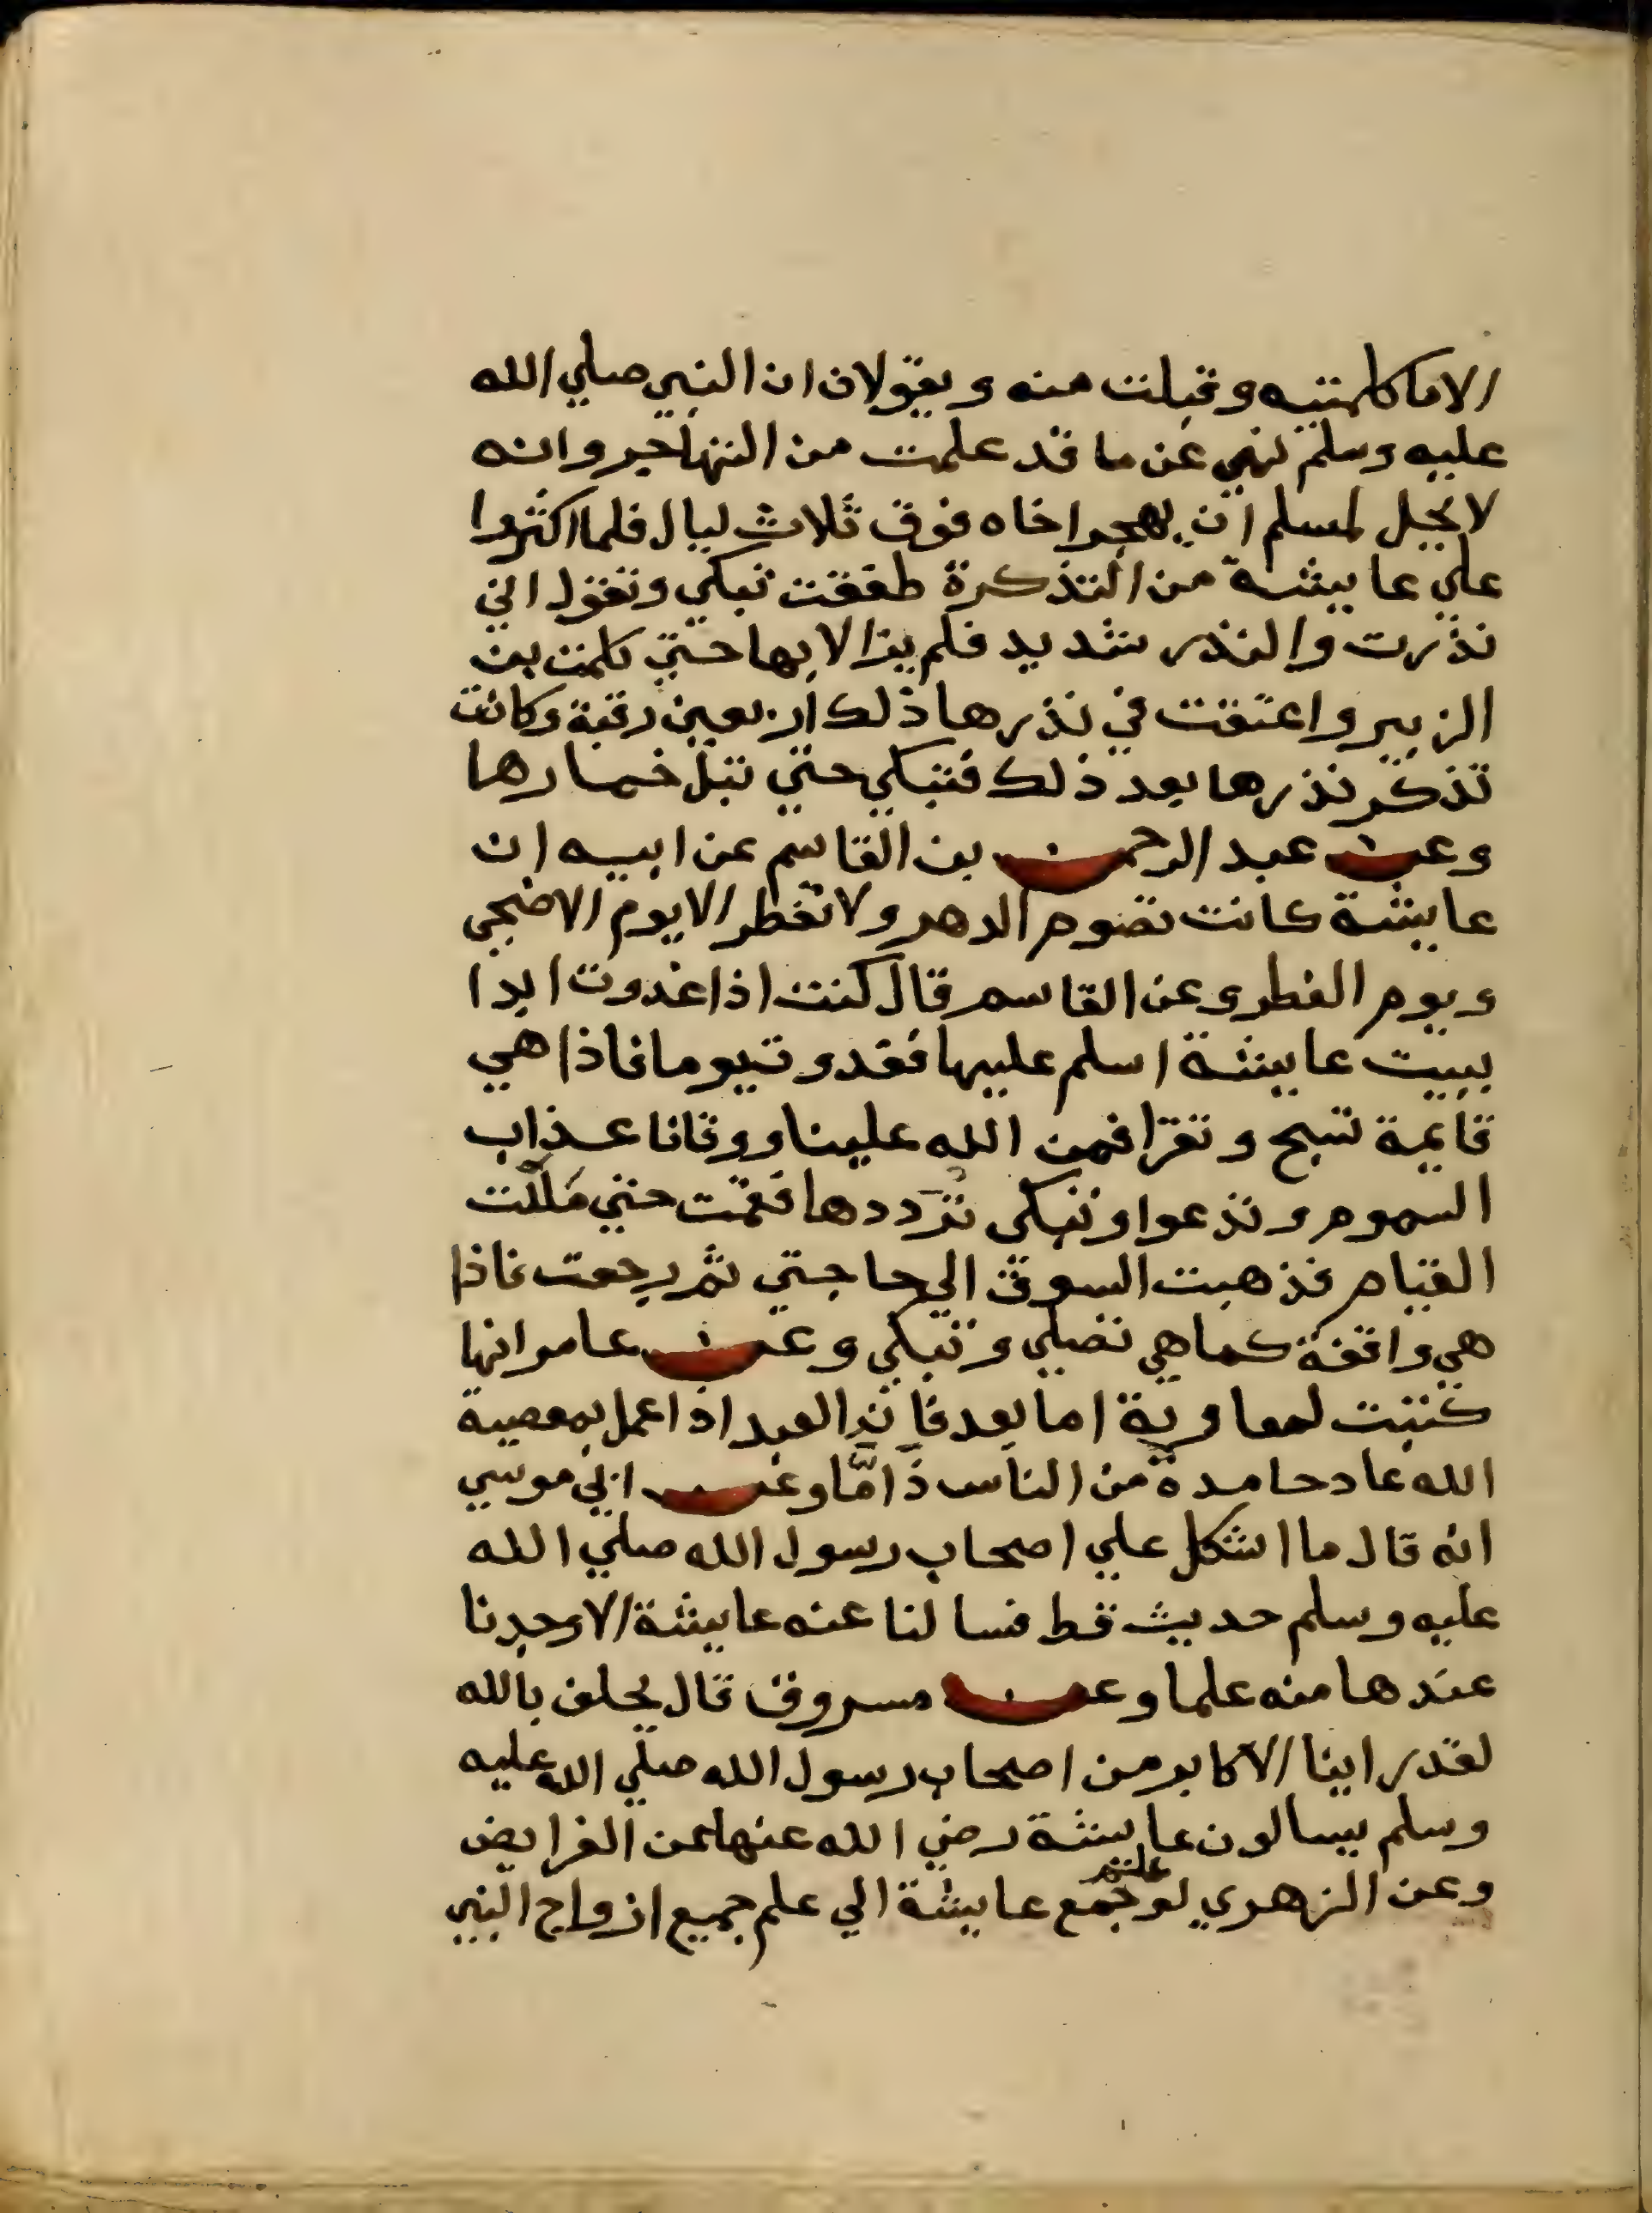 الاما كلمتيه وقبلت منه ويقولان ان النبي صلي الله
عليه وسلم نهي عن ما قد علمت من التهاجر وانه
لا يحل لمسلم ان يهجر اخاه فوق ثلاث ليال فلما اكثروا
علي عايشة من التذكرة طفقت تبكي وتقول اني
نذرت والنذر شديد فلم يزالا بها حتي كلمت بن
الزبير واعتقت في نذرها ذلك اربعين رقبة وكانت
تذكر نذرها بعد ذلك فتبكي حتي تبل خمارها
وعن عبد الرحمن بن القاسم عن ابيه ان
عايشة كانت تصوم الدهر ولا تفطر الا يوم الاضحي
ويوم الفطر وعن القاسم قال كنت اذا غدوت ابدا
ببيت عايشة اسلم عليها فغدوت يوما فاذا هي
قايمة تسبح وتقرا فمن الله علينا ووقانا عذاب
السموم وتدعوا وتبكي تردها فقمت حتي مللت
القيام فذهبت السوق الي حاجتي ثم رجعت فاذا
هي واقفة كما هي تصلي وتبكي وعن عامر انها
كتبت لمعاوية اما بعد فان العبد اذا عمل بمعصية
الله عاد حامده من الناس ذاما وعن ابي موسي
انه قال ما اشكل علي اصحاب رسول الله صلي الله
عليه وسلم حديث قط فسالنا عنه عايشة الا وجدنا
عندها منه علما وعن مسروق قال يحلف بالله
لقد راينا الاكابر من اصحاب رسول الله صلي الله عليه
وسلم يسالون عايشة رضي الله عنها عن الفرايض
وعن الزهري لو جمع علم عايشة الي علم جميع ازواج النبي